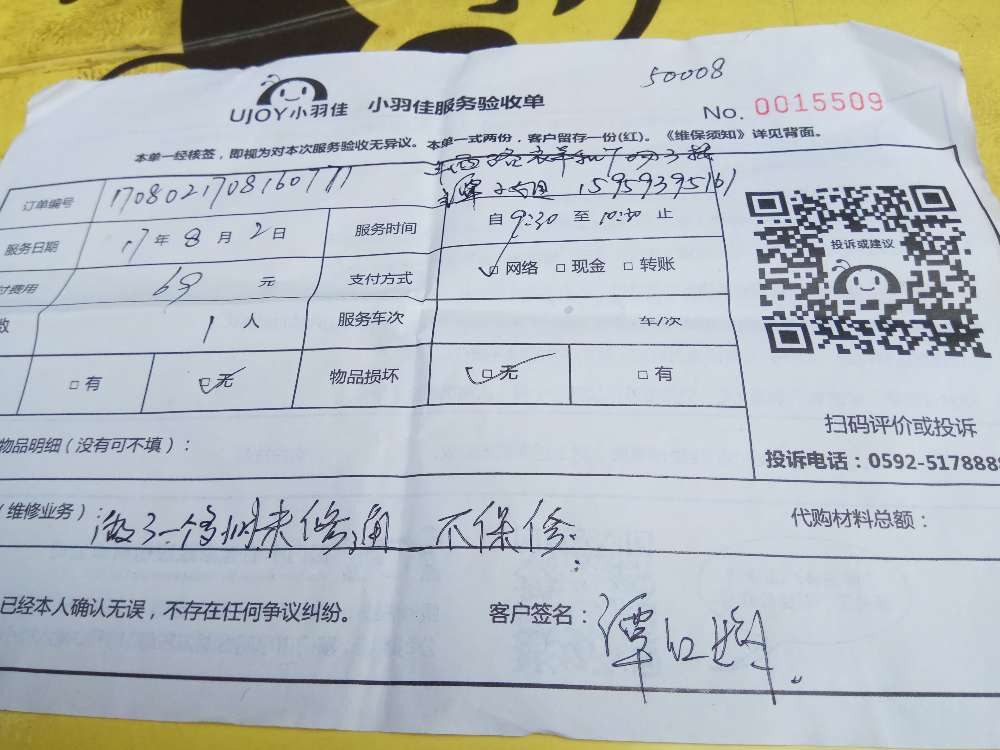 50008
UJOY小羽佳 小羽佳服务验收单
No. 0015509
本单一经核签，即视为对本次服务验收无异议。本单一式两份，客户留存一份(红)。《维保须知》详见背面。
订单编号 1708021708160777 15959395161
服务日期 17年8月2日 服务时间 自9:30至10:30止
付费用 69 元 支付方式 □网络 □现金 □转账
数 1人 服务车次 车/次
□有 □无 物品损坏 □无 □有
投诉或建议
扫码评价或投诉
投诉电话：0592-5178888
物品明细（没有可不填）：
（维修业务）： 做了一个多小时未修通 不保修 代购材料总额：
已经本人确认无误，不存在任何争议纠纷。 客户签名：